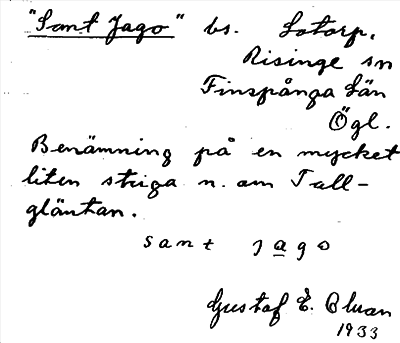 "Sant Jago" bs. Lotorp,
Risinge sn
Finspånga län
Ögl.
Benämning på en mycket
liten stuga n. om Tall-
gläntan.
sant jago
Gustaf E.
1933